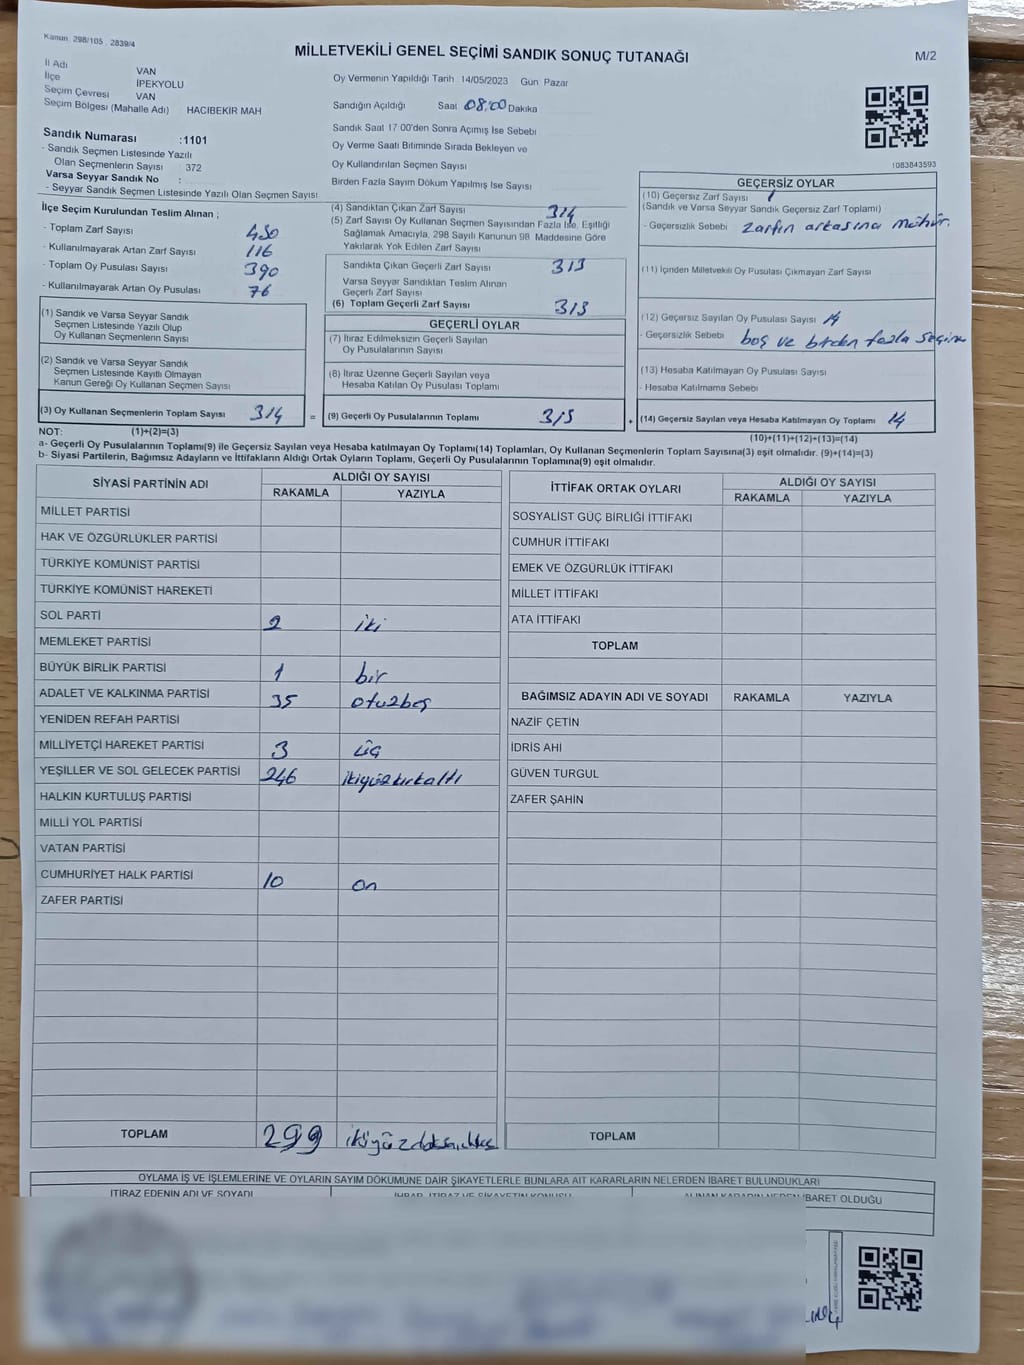 Kanun 298/105 , 2839/4
MİLLETVEKİLİ GENEL SEÇİMİ SANDIK SONUÇ TUTANAĞI
M/2
İl Adı VAN
İlçe İPEKYOLU
Seçim Çevresi VAN
Seçim Bölgesi (Mahalle Adı) HACIBEKİR MAH
Sandık Numarası :1101
- Sandık Seçmen Listesinde Yazılı
Olan Seçmenlerin Sayısı 372
Varsa Seyyar Sandık No :
- Seyyar Sandık Seçmen Listesinde Yazılı Olan Seçmen Sayısı
Oy Vermenin Yapıldığı Tarih 14/05/2023 Gün Pazar
Sandığın Açıldığı Saat 08:00 Dakika
Sandık Saat 17:00'den Sonra Açımış İse Sebebi
Oy Verme Saati Bitiminde Sırada Bekleyen ve
Oy Kullandırılan Seçmen Sayısı
Birden Fazla Sayım Döküm Yapılmış İse Sayısı
1083843593
İlçe Seçim Kurulundan Teslim Alınan ;
- Toplam Zarf Sayısı 430
- Kullanılmayarak Artan Zarf Sayısı 116
- Toplam Oy Pusulası Sayısı 390
- Kullanılmayarak Artan Oy Pusulası 76
(1) Sandık ve Varsa Seyyar Sandık
Seçmen Listesinde Yazılı Olup
Oy Kullanan Seçmenlerin Sayısı
(2) Sandık ve Varsa Seyyar Sandık
Seçmen Listesinde Kayıtlı Olmayan
Kanun Gereği Oy Kullanan Seçmen Sayısı
(3) Oy Kullanan Seçmenlerin Toplam Sayısı 314 =
(4) Sandıktan Çıkan Zarf Sayısı 314
(5) Zarf Sayısı Oy Kullanan Seçmen Sayısından Fazla İse, Eşitliği
Sağlamak Amacıyla, 298 Sayılı Kanunun 98. Maddesine Göre
Yakılarak Yok Edilen Zarf Sayısı
Sandıkta Çıkan Geçerli Zarf Sayısı 313
Varsa Seyyar Sandıktan Teslim Alınan
Geçerli Zarf Sayısı
(6) Toplam Geçerli Zarf Sayısı 313
GEÇERLİ OYLAR
(7) İtiraz Edilmeksizin Geçerli Sayılan
Oy Pusulalarının Sayısı
(8) İtiraz Üzerine Geçerli Sayılan veya
Hesaba Katılan Oy Pusulası Toplamı
(9) Geçerli Oy Pusulalarının Toplamı 315 +
GEÇERSİZ OYLAR
(10) Geçersiz Zarf Sayısı 1
(Sandık ve Varsa Seyyar Sandık Geçersiz Zarf Toplamı)
- Geçersizlik Sebebi zarfın arkasına mühür.
(11) İçinden Milletvekili Oy Pusulası Çıkmayan Zarf Sayısı
(12) Geçersiz Sayılan Oy Pusulası Sayısı 14
- Geçersizlik Sebebi boş ve birden fazla seçim
(13) Hesaba Katılmayan Oy Pusulası Sayısı
- Hesaba Katılmama Sebebi
(14) Geçersiz Sayılan veya Hesaba Katılmayan Oy Toplamı 14
NOT: (1)+(2)=(3)
(10)+(11)+(12)+(13)=(14)
a- Geçerli Oy Pusulalarının Toplamı(9) ile Geçersiz Sayılan veya Hesaba katılmayan Oy Toplamı(14) Toplamları, Oy Kullanan Seçmenlerin Toplam Sayısına(3) eşit olmalıdır. (9)+(14)=(3)
b- Siyasi Partilerin, Bağımsız Adayların ve İttifakların Aldığı Ortak Oyların Toplamı, Geçerli Oy Pusulalarının Toplamına(9) eşit olmalıdır.
SİYASİ PARTİNİN ADI
ALDIĞI OY SAYISI
RAKAMLA YAZIYLA
MİLLET PARTİSİ
HAK VE ÖZGÜRLÜKLER PARTİSİ
TÜRKİYE KOMÜNİST PARTİSİ
TÜRKİYE KOMÜNİST HAREKETİ
SOL PARTİ 2 iki
MEMLEKET PARTİSİ
BÜYÜK BİRLİK PARTİSİ 1 bir
ADALET VE KALKINMA PARTİSİ 35 otuzbeş
YENİDEN REFAH PARTİSİ
MİLLİYETÇİ HAREKET PARTİSİ 3 üç
YEŞİLLER VE SOL GELECEK PARTİSİ 246 ikiyüzkırkaltı
HALKIN KURTULUŞ PARTİSİ
MİLLİ YOL PARTİSİ
VATAN PARTİSİ
CUMHURİYET HALK PARTİSİ 10 on
ZAFER PARTİSİ
TOPLAM 299
İTTİFAK ORTAK OYLARI
ALDIĞI OY SAYISI
RAKAMLA YAZIYLA
SOSYALİST GÜÇ BİRLİĞİ İTTİFAKI
CUMHUR İTTİFAKI
EMEK VE ÖZGÜRLÜK İTTİFAKI
MİLLET İTTİFAKI
ATA İTTİFAKI
TOPLAM
BAĞIMSIZ ADAYIN ADI VE SOYADI RAKAMLA YAZIYLA
NAZİF ÇETİN
İDRİS AHİ
GÜVEN TURGUL
ZAFER ŞAHİN
TOPLAM
OYLAMA İŞ VE İŞLEMLERİNE VE OYLARIN SAYIM DÖKÜMÜNE DAİR ŞİKAYETLERLE BUNLARA AİT KARARLARIN NELERDEN İBARET BULUNDUKLARI
İTİRAZ EDENİN ADI VE SOYADI İHBAR, İTİRAZ VE ŞİKAYETİN KONUSU ALINAN KARARIN NEDEN İBARET OLDUĞU